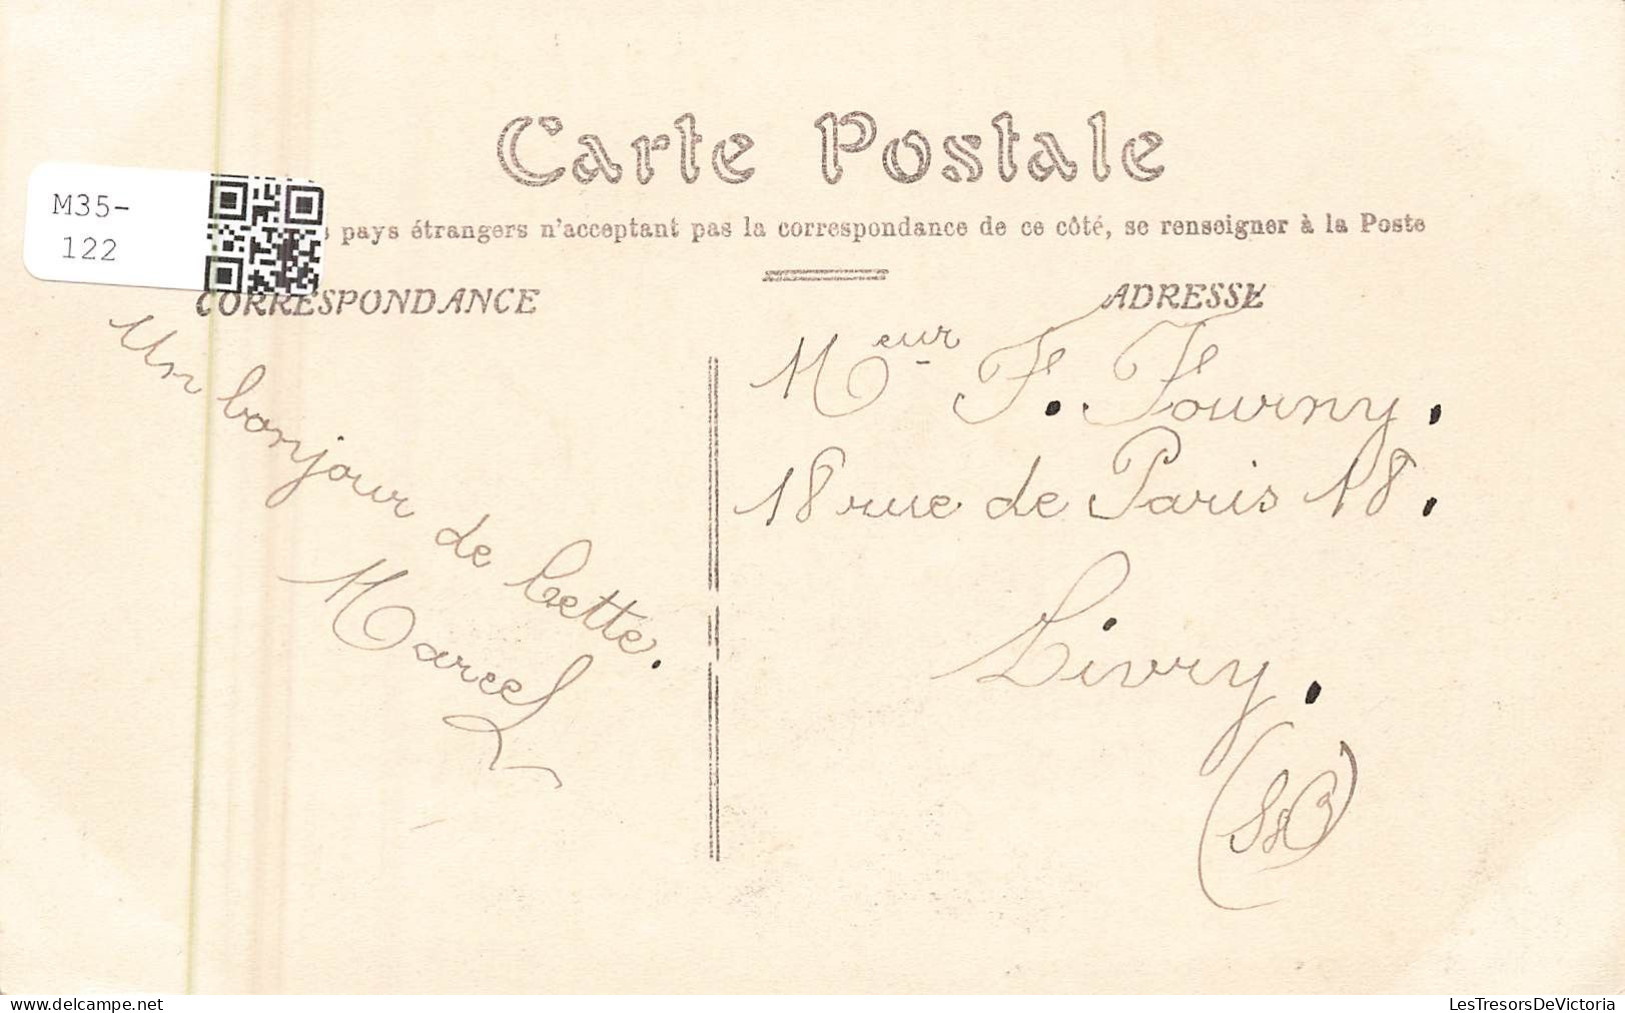 Carte Postale
M35-
122
pays étrangers n'acceptant pas la correspondance de ce côté, se renseigner à la Poste
CORRESPONDANCE
ADRESSE
Un bonjour de Cette.
Marcel
Meur F. Fourny.
18 rue de Paris 18.
Livry.
(S&O)
LesTresorsDeVictoria
delcampe.net